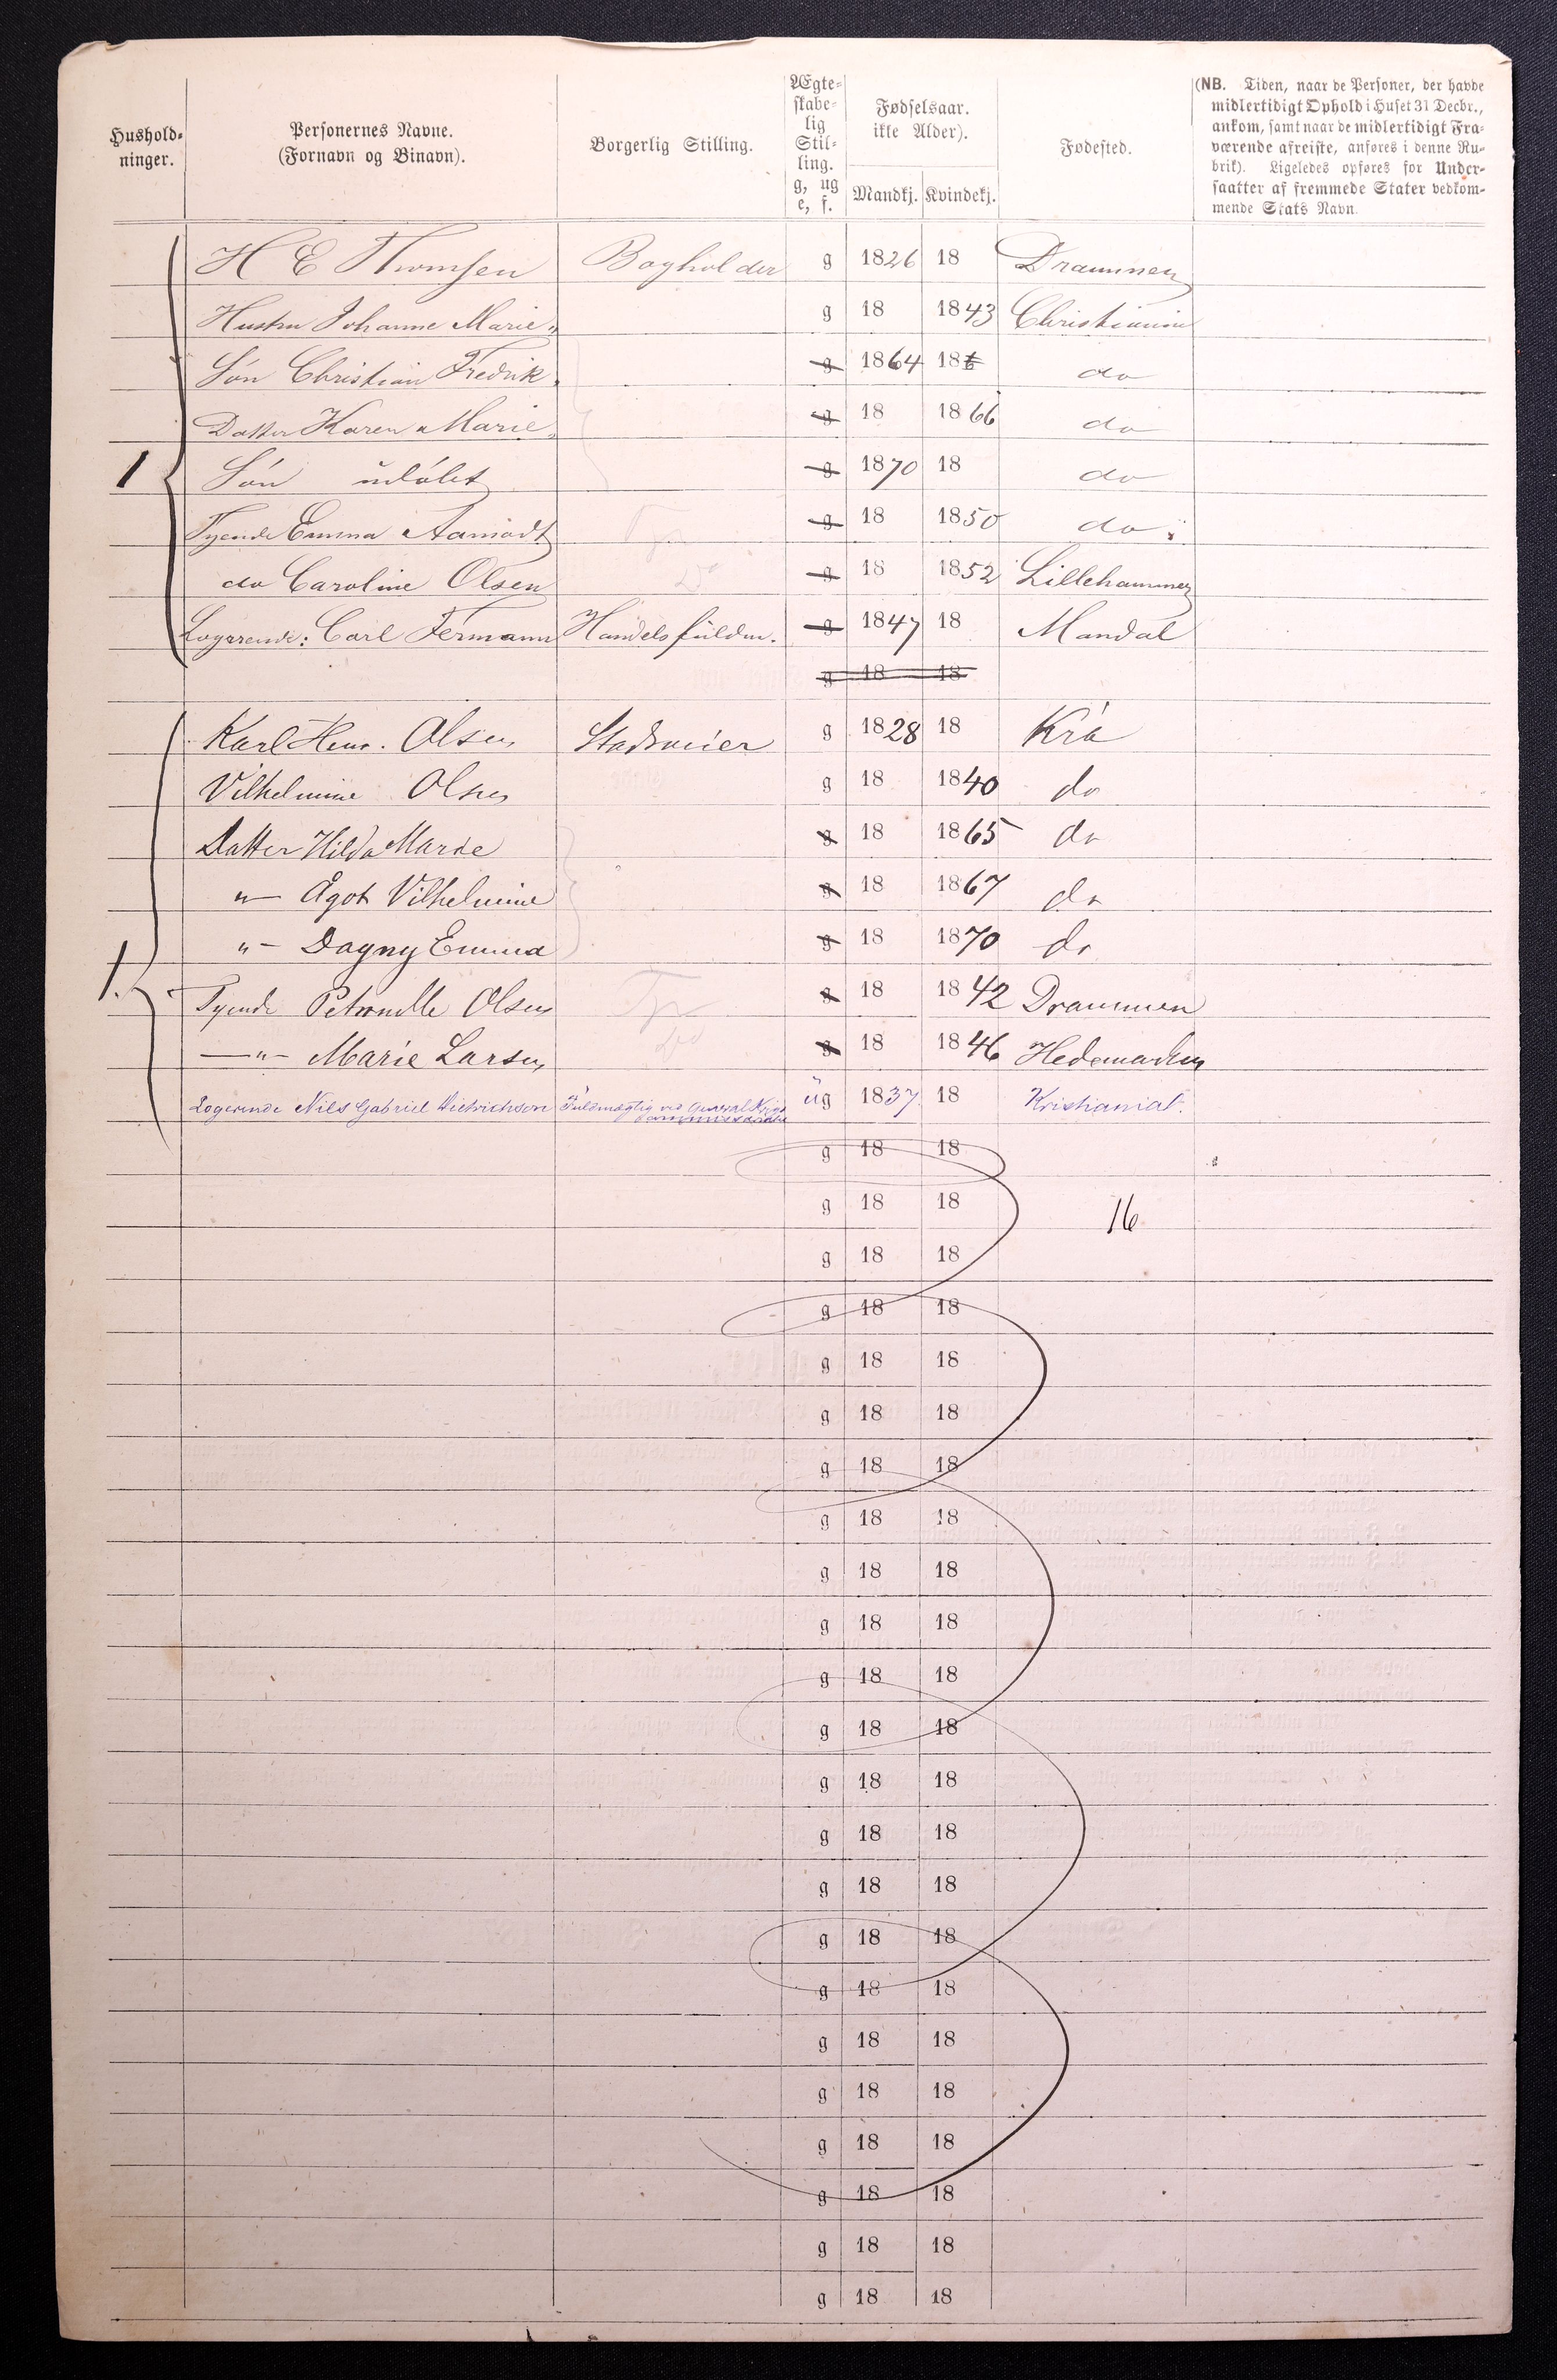 Hushold-
ninger.
Personernes Navne.
(Fornavn og Binavn).
Borgerlig Stilling.
Ægte-
skabe-
lig
Stil-
ling.
g, ug
e, f.
Fødselsaar.
ikke Alder).
Mandkj. Kvindekj.
Fødested.
(NB. Tiden, naar de Personer, der havde
midlertidigt Ophold i Huset 31 Decbr.,
ankom, samt naar de midlertidigt Fra-
værende afreiste, anføres i denne Ru-
brik). Ligeledes opføres for Under-
saatter af fremmede Stater vedkom-
mende Stats Navn.
H E Thomsen Bogholder g 1826 18 Drammen
Hustru Johanne Marie „ g 18 1843 Christiania
Søn Christian Fredrik „ g 1864 18 do
Datter Karen Marie „ g 18 1866 do
1 Søn udøbt g 1870 18 do
Tyende Emma Aamodt g 18 1850 do
do Caroline Olsen g 18 1852 Lillehammer
Logerende: Carl Fermann Handelsfuldm. g 1847 18 Mandal
g 18 18
Karl Henr. Olsen g 1828 18 Kra
Vilhelmine Olsen g 18 1840 do
Datter Hilda Marie g 18 1865 do
" — Agot Vilhelmine g 18 1867 do
1. " — Dagny Emma g 18 1870 do
Tyende Petronille Olsen Tje g 18 1842 Drammen
— " — Marie Larsen g 18 1846 Hedemarken
Logerende Nils Gabriel Dietrichson Fuldmægtig ved General Krigs
commissariatet ug 1837 18 Kristiania
g 18 18
g 18 18 16
g 18 18
g 18 18
g 18 18
g 18 18
g 18 18
g 18 18
g 18 18
g 18 18
g 18 18
g 18 18
g 18 18
g 18 18
g 18 18
g 18 18
g 18 18
g 18 18
g 18 18
g 18 18
g 18 18
g 18 18
g 18 18